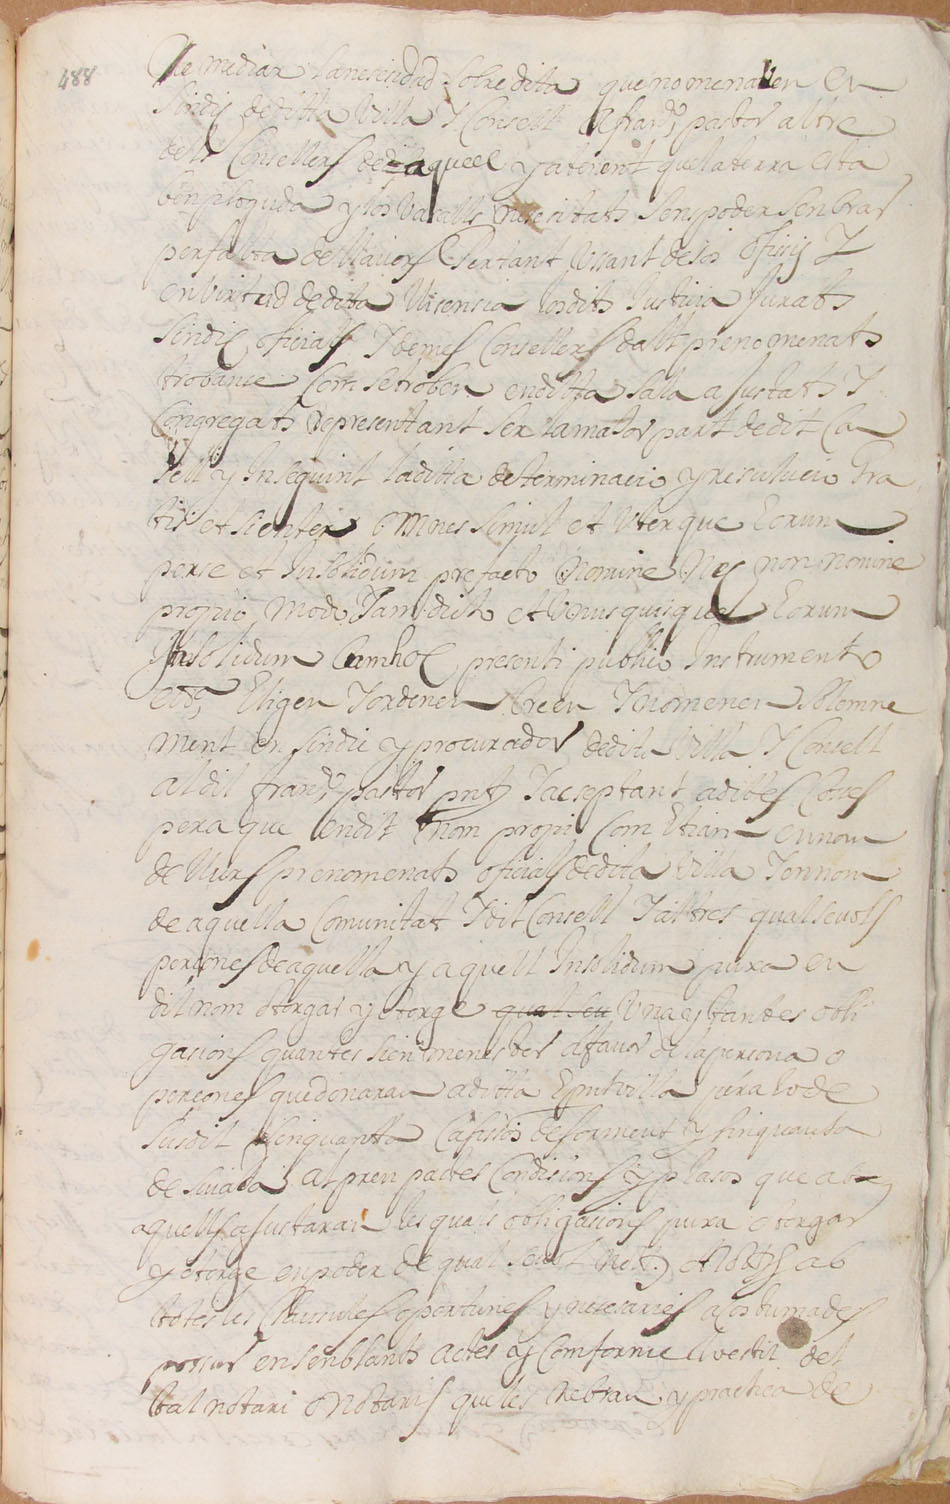 488
Re mediar la nesesidad sobre dita que nomenasen en
Sindic de ditta Villa Y Consell a fran.co pastor altre
dels Consellers de aquell y atenent que la terra esta
ben ploguda y los Vasalls nesesitats sens poder senbrar
per falta de llavors Pertant Usant de sos ofisis Y
en virtud de dita llisensia los dits Justisia Jurats
Sindic ofisials Y demes Consellers dalt prenomenats
trobanse Com se troben en ditta Sala ajustats Y
Congregats representant ser la mator part de dit Co
sell y Insequint la ditta determinacio y resulucio Gra
tis et sienter omnes simul et Uterque Eorum
per se et Insolidum prefacto Nomine Nec non nomine
propio, Modo Jam dicto et Unusquisque Eorum
Insolidum Cum hoc presenti publico Instrumento
etts Eligen Y ordenen Creen Y nomenen solemne
ment en sindic y procurador de dita Villa Y Consell
al dit fran.co pastor pnt Y acseptant a dites Coses
pera que en dit nom propi Com Etiam en nom
de llurs prenomenats ofisials de dita Villa Y en nom
de aquella Comunitat Y dit Consell Y altres qualsevols
persones de aquella y aquell Insolidum puxa en
dit nom otorgar y otorge qual seu Una y tantes obli
gasions quantes sien menester a favor de la persona o
persones que donaran a ditta E pnt villa pera lo de
susdit sinquanta Cafisos de forment y sinquanta
de sivada al preu pactes Condisions y plasos que ab
aquells ajustaran les quals obligasions puxa otorgar
y otorge en poder de qual sevol Not. o Nots ab
totes les Clausules oportunes y nesesaries acostumades
posar en senblants actes y Comforme lo estil del
tal notari o Notaris que les rebran y practica de